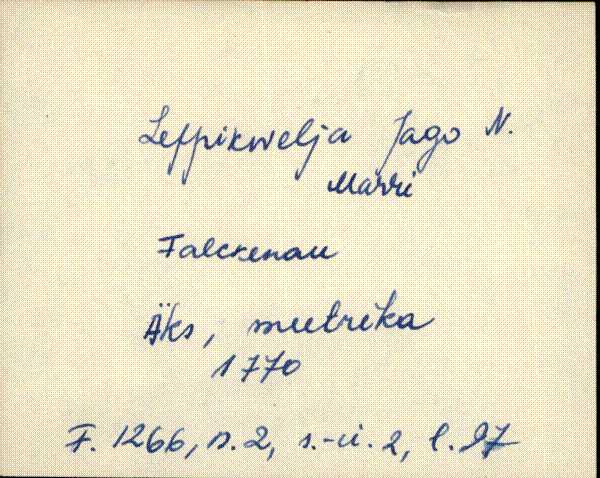 Leppikwelja Jago N.
Marri
Falckenau
Äks, meetrika
1770
F. 1266, n. 2, s.-ü. 2, l. 97